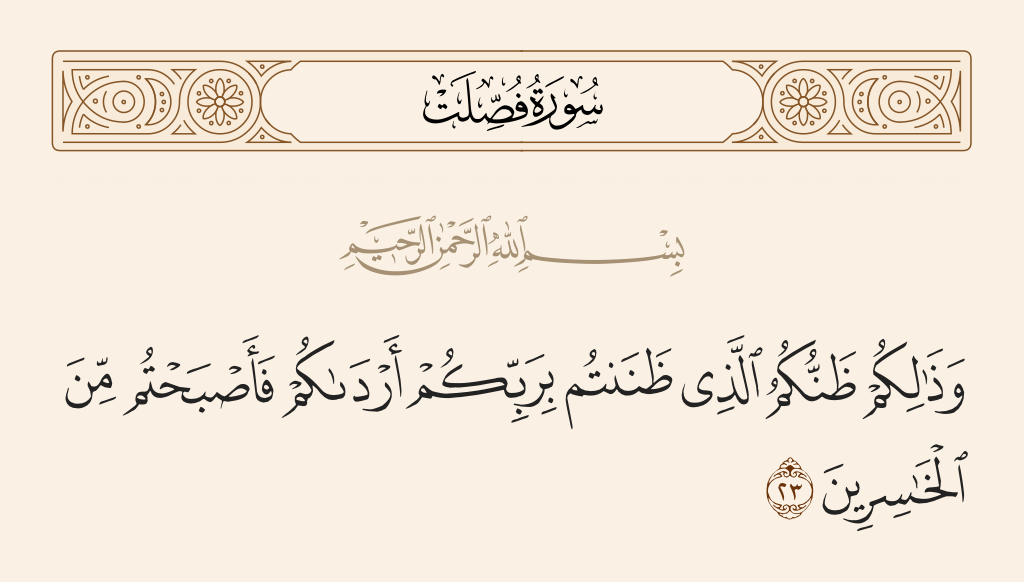 سُورَةُ فُصِّلَتْ
بِسْمِ ٱللَّهِ ٱلرَّحْمَٰنِ ٱلرَّحِيمِ
وَذَٰلِكُمْ ظَنُّكُمُ ٱلَّذِى ظَنَنتُم بِرَبِّكُمْ أَرْدَىٰكُمْ فَأَصْبَحْتُم مِّنَ
ٱلْخَٰسِرِينَ ٢٣